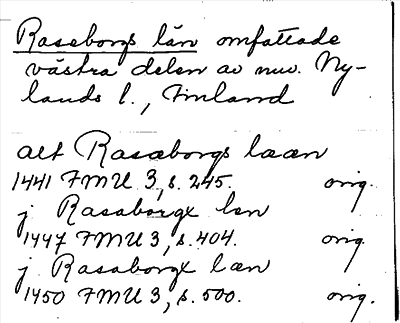 Raseborgs län omfattade
västra delen av nuv. Ny-
lands l., Finland
alt Rasæborgs laæn
1441 FMU 3, s. 245. orig.
j Rasaborgx len
1447 FMU 3, s. 404. orig.
j Rasaborgx læn
1450 FMU 3, s. 500. orig.